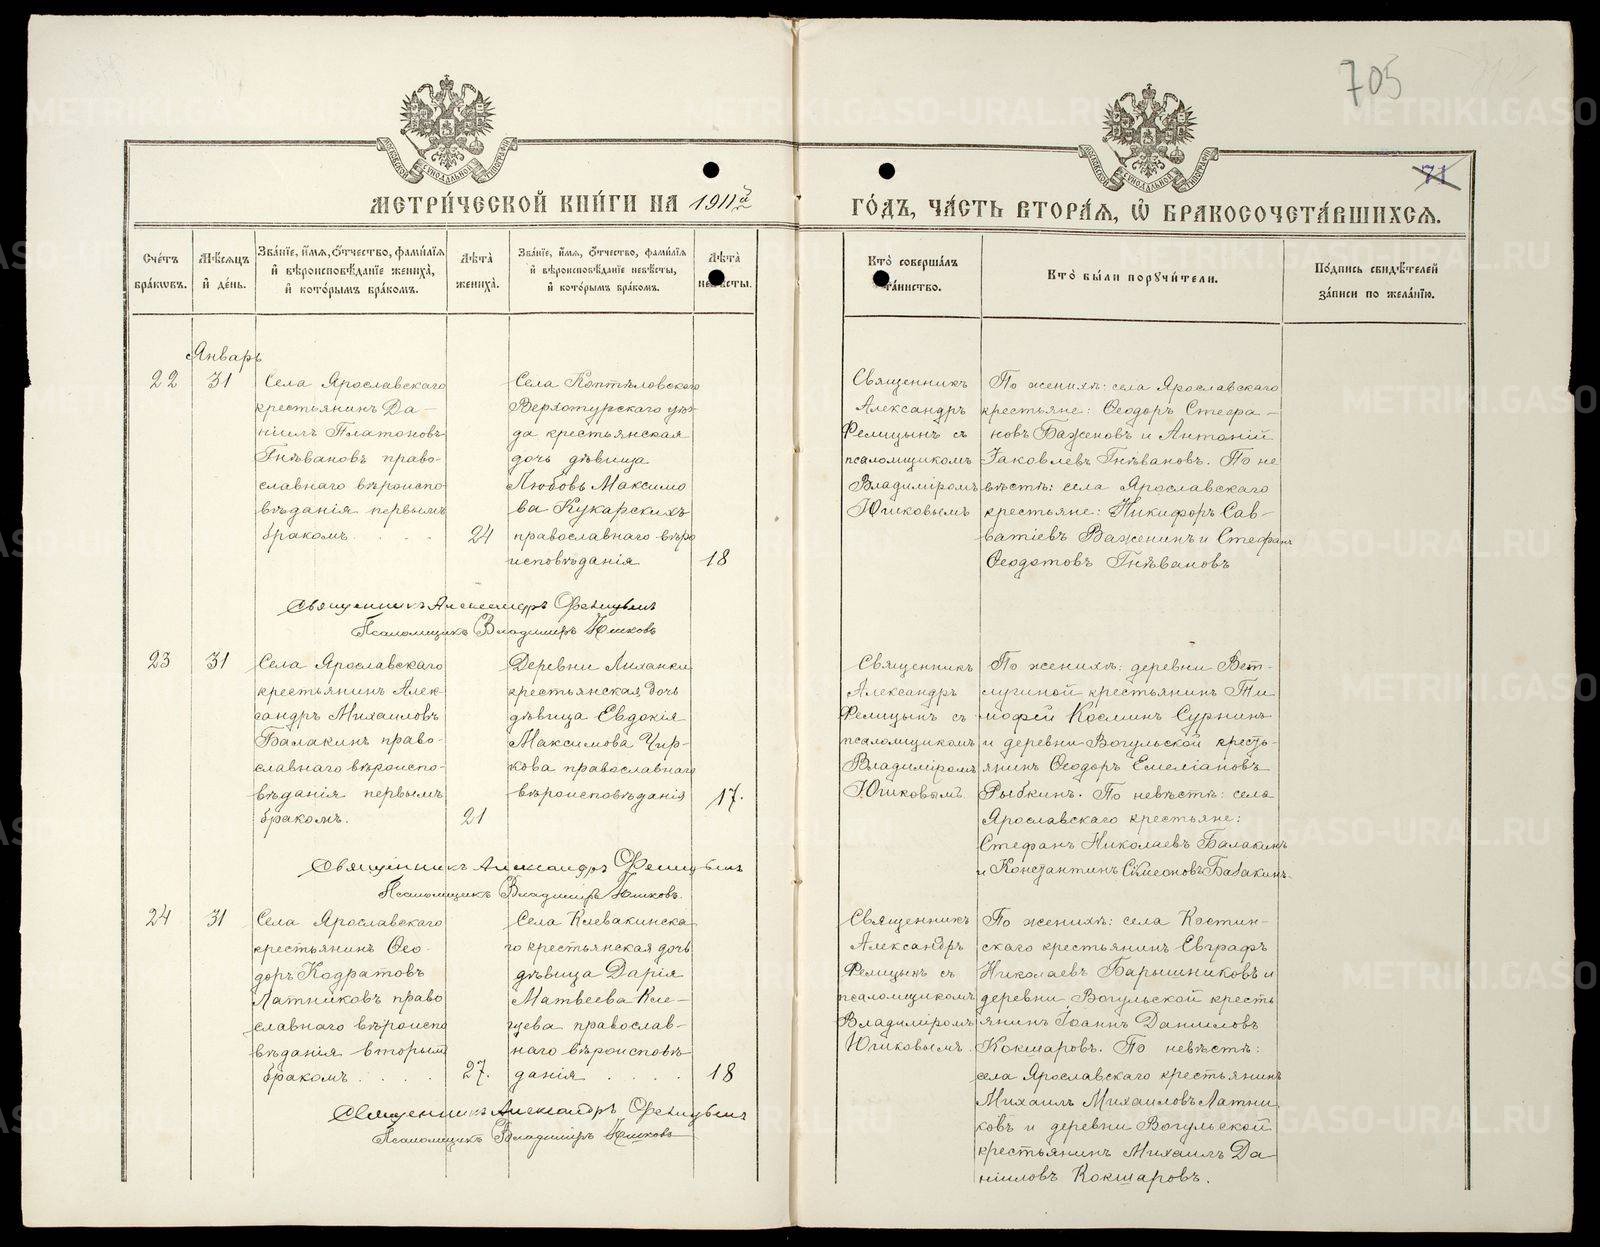 705
71
МЕТРИЧЕСКОЙ КНИГИ НА 1911й
ГОДЪ, ЧАСТЬ ВТОРАЯ, Ѡ БРАКОСОЧЕТАВШИХСЯ.
Счетъ браковъ.
Мѣсяцъ и день.
Званіе, имя, отчество, фамилія и вѣроисповѣданіе жениха, и которымъ бракомъ.
Лѣта жениха.
Званіе, имя, отчество, фамилія и вѣроисповѣданіе невѣсты, и которымъ бракомъ.
Лѣта невѣсты.
Кто совершалъ таинство.
Кто были поручители.
Подпись свидѣтелей записи по желанію.
Январь
22
31
Села Ярославскаго
крестьянинъ Да-
ніилъ Платоновъ
Гнѣвановъ право-
славнаго вѣроиспо
вѣданія первымъ
бракомъ. . . .
24
Села Коптѣловскаго
Верхотурскаго уѣз-
да крестьянская
дочь дѣвица
Любовь Максимо
ва Кукарскихъ
православнаго вѣро
исповѣданія
18
Священникъ
Александръ
Фелицынъ съ
псаломщикомъ
Владиміромъ
Юшковымъ
По женихѣ: села Ярославскаго
крестьяне: Ѳеодоръ Стефа-
новъ Баженовъ и Антоній
Іаковлевъ Гнѣвановъ. По не
вѣстѣ: села Ярославскаго
крестьяне: Никифоръ Сав-
ватіевъ Важенинъ и Стефанъ
Ѳеодотовъ Гнѣвановъ
Священникъ Александръ Фелицынъ
Псаломщикъ Владиміръ Юшковъ
23
31
Села Ярославскаго
крестьянинъ Алек-
сандръ Михаиловъ
Балакинъ право-
славнаго вѣроиспо-
вѣданія первымъ
бракомъ.
21
Деревни Лиханки
крестьянская дочь
дѣвица Евдокія
Максимова Чир-
кова православнаго
вѣроисповѣданія
17.
Священникъ
Александръ
Фелицынъ съ
псаломщикомъ
Владиміромъ
Юшковымъ
По женихѣ: деревни Вет-
лугиной крестьянинъ Ти
мофей Косминъ Суринъ
и деревни Вогульской кресть-
янинъ Ѳеодоръ Емеліановъ
Рыбкинъ. По невѣстѣ: села
Ярославскаго крестьяне:
Стефанъ Николаевъ Балакинъ
и Константинъ Симеоновъ Бабакинъ.
Священникъ Александръ Фелицынъ
Псаломщикъ Владиміръ Юшковъ.
24
31
Села Ярославскаго
крестьянинъ Ѳео-
доръ Кодратовъ
Латниковъ право
славнаго вѣроиспо
вѣданія вторымъ
бракомъ . . . .
27.
Села Клевакинска
го крестьянская дочь
дѣвица Дарія
Матвеева Кле-
цева православ-
наго вѣроисповѣ
данія . . . .
18
Священникъ
Александръ
Фелицынъ съ
псаломщикомъ
Владиміромъ
Юшковымъ.
По женихѣ: села Костин-
скаго крестьянинъ Евграфъ
Николаевъ Барышниковъ и
деревни Вогульской кресть
янинъ Іоаннъ Даниловъ
Кокшаровъ. По невѣстѣ:
села Ярославскаго крестьянинъ
Михаилъ Михаиловъ Латни
ковъ и деревни Вогульской
крестьянинъ Михаилъ Да-
ніиловъ Кокшаровъ.
Священникъ Александръ Фелицынъ
Псаломщикъ Владиміръ Юшковъ